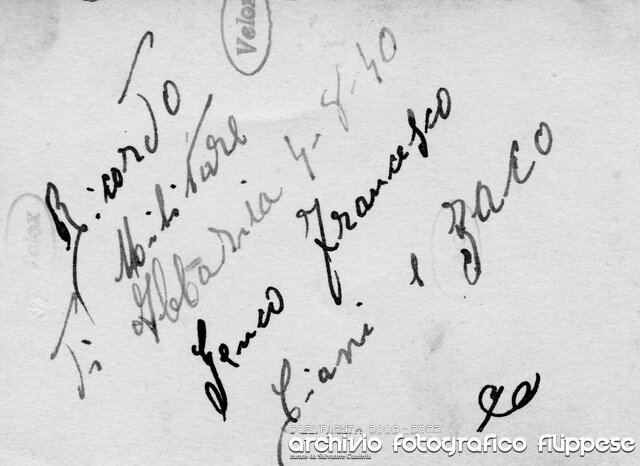 Velox
Velox
Ricordo
Militare
Ti Abbazia 4-8-40
Genco Francesco
Ciani e Baco
COPYRIGHT© 2009-2022
archivio fotografico filippese
curato da Salvatore Cambria